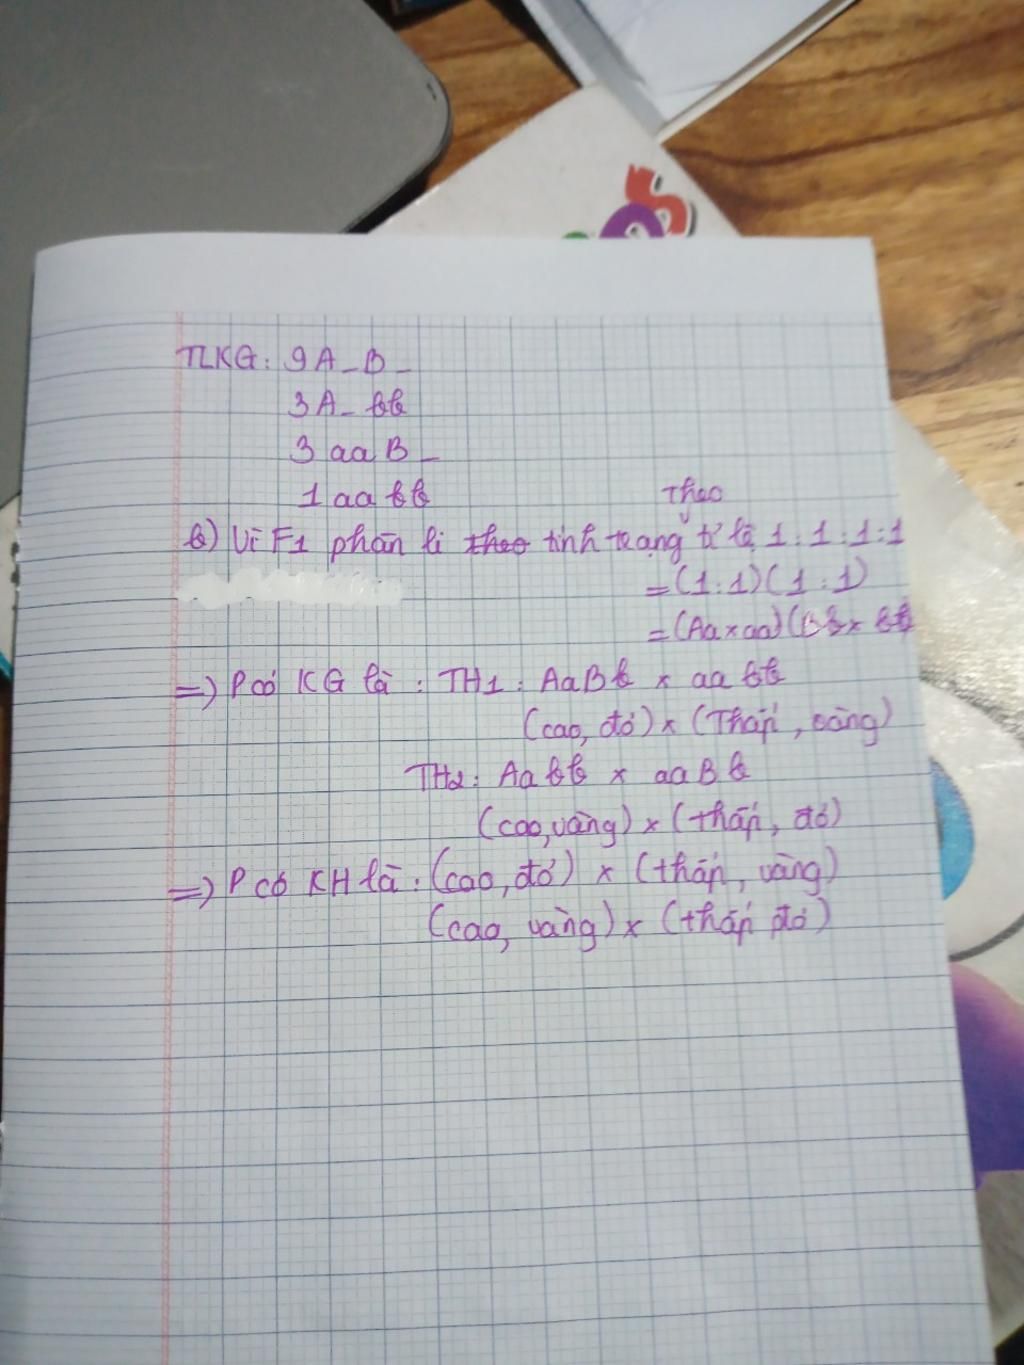 OS
TLKG: 9A_B_
3A_bb
3 aaB_
1 aabb
Theo
b) Vì F1 phân li theo tính trạng tỉ lệ 1:1:1:1
=(1:1)(1:1)
=(Aaxaa)(Bbx bb
=) P có KG là : TH1: AaBb x aabb
(cao, đỏ) x (Thấp, vàng)
TH2: Aabb x aaBb
(cao, vàng) x (thấp, đỏ)
=) P có KH là : (cao, đỏ) x (thấp, vàng)
(cao, vàng) x (thấp đỏ)